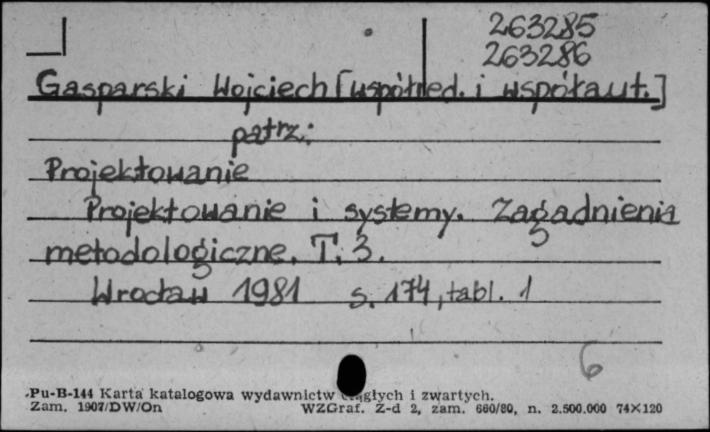 263285
263286
Gasparski Wojciech [współred. i współaut.]
patrz:
Projektowanie
Projektowanie i systemy. Zagadnienia
metodologiczne. T. 3.
Wrocław 1981 s. 174, tabl. 1
6
Pu-B-144 Karta katalogowa wydawnictw ciągłych i zwartych.
Zam. 1907/DW/On WZGraf. Z-d 2, zam. 660/80, n. 2.500.000 74×120